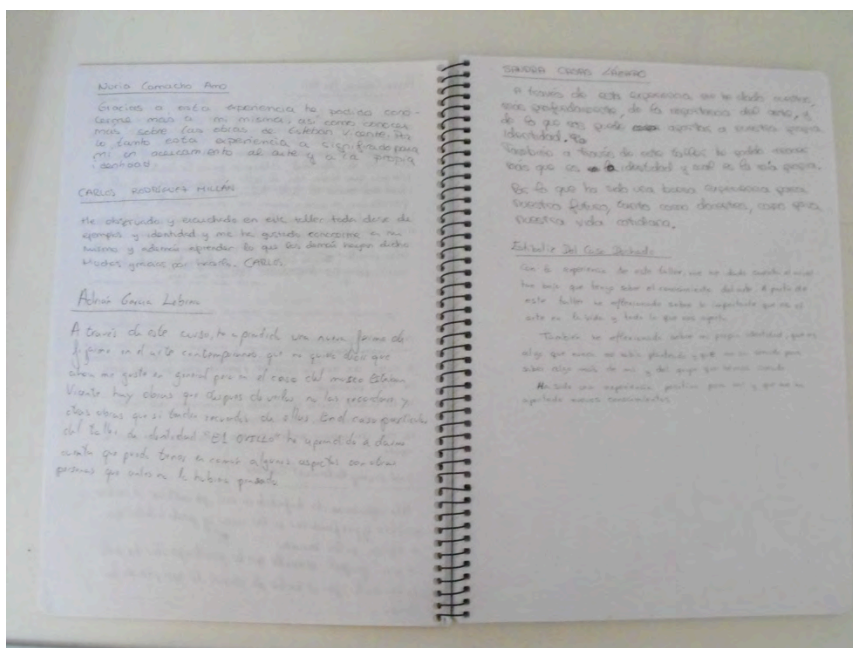 Nuria Camacho Amo
Gracias a esta experiencia he podido cono-
cerme más a mi misma, así como conocer
más sobre las obras de Esteban Vicente. Por
lo tanto esta experiencia a significado para
mi un acercamiento al arte y a la propia
identidad.
CARLOS RODRÍGUEZ MILLÁN
He observado y escuchado en este taller toda clase de
ejemplos y identidad y me ha gustado conocerme a mi
mismo y además aprender lo que los demás
Muchas gracias por CARLOS.
Adrián García Lobera
A través de este curso, he aprendido una nueva forma de
fijarme en el arte contemporáneo que no quiere decir que
ahora me guste en general pero en el caso del museo Esteban
Vicente hay obras que después de verlas no las recordare y
otras obras que si tendre recuerdos de ellas. En el caso particular
del taller de identidad "EL OVILLO" he aprendido a darme
cuenta que puedo tener en comun algunos aspectos con otras
personas que antes no lo hubiera pensado
SANDRA LÁZARO
A través de esta experiencia me he dado cuenta,
más profundamente, de la importancia del arte, y
de lo que nos puede aportar a nuestra propia
identidad.
También a través de este taller he podido conocer
más que es la identidad y cuál es la mía propia.
Por lo que ha sido una buena experiencia para
nuestro futuro, tanto como docentes, como para
nuestra vida cotidiana.
Estíbaliz Del Caso
Con la experiencia de este taller, me he dado cuenta el nivel
tan bajo que tengo sobre el conocimiento del arte. A parte de
este taller he reflexionado sobre lo importante que es el
arte en la vida y todo lo que nos aporta.
También he reflexionado sobre mi propia identidad, que es
algo que nunca me había planteado y que me ha servido para
saber algo más de mi y del grupo que hemos
Ha sido una experiencia positiva para mi y que me ha
aportado nuevos conocimientos.